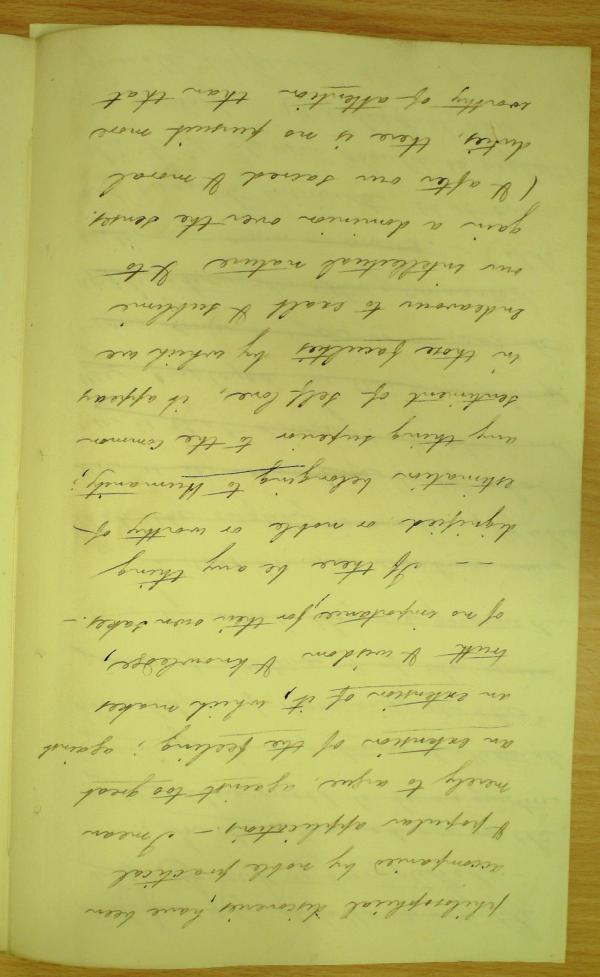 philosophical discoveries, have been
accompanied by noble practical
& popular applications. - I mean
merely to argue, against too great
an extention of the feeling; against
an extention of it, which makes
truth & wisdom & knowledge,
of no importance, for their own sakes. -
- If there be any thing
dignified or noble or worthy of
estimation belonging to Humanity;
any thing superior to the common
sentiment of self love, it appears
in those faculties by which we
endeavour to exalt & sublime
our intellectual nature & to
gain a dominion over the senses.
(& after our sacred & moral
duties, there is no pursuit more
worthy of attention than that